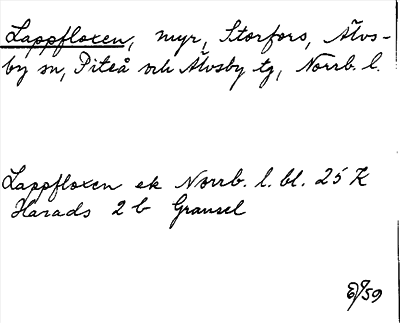 Lappfloxen, myr, Storfors, Älvs-
by sn, Piteå och Älvsby tg, Norrb. l.
Lappfloxen ek Norrb. l. bl. 25 K
Harads 2 b Gransel
/59